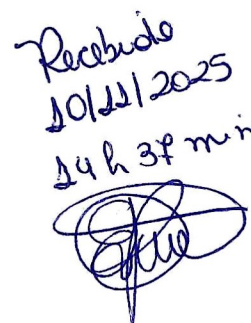 Recebido
10/11/2025
14 h 37 min